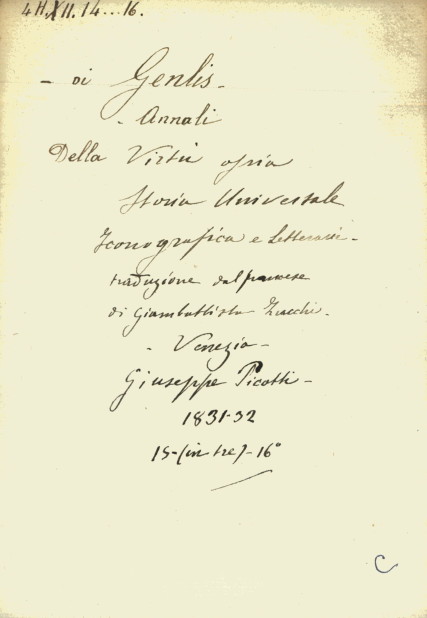 4 H. XII. 14...16.
- di Genlis -
- Annali
Della Virtù ossia
Storia Universale
Iconografica e Letteraria -
traduzione dal francese
di Giambattista Zucchi -
- Venezia -
Giuseppe Picotti -
1831-32
15-(in tre)-16°
C